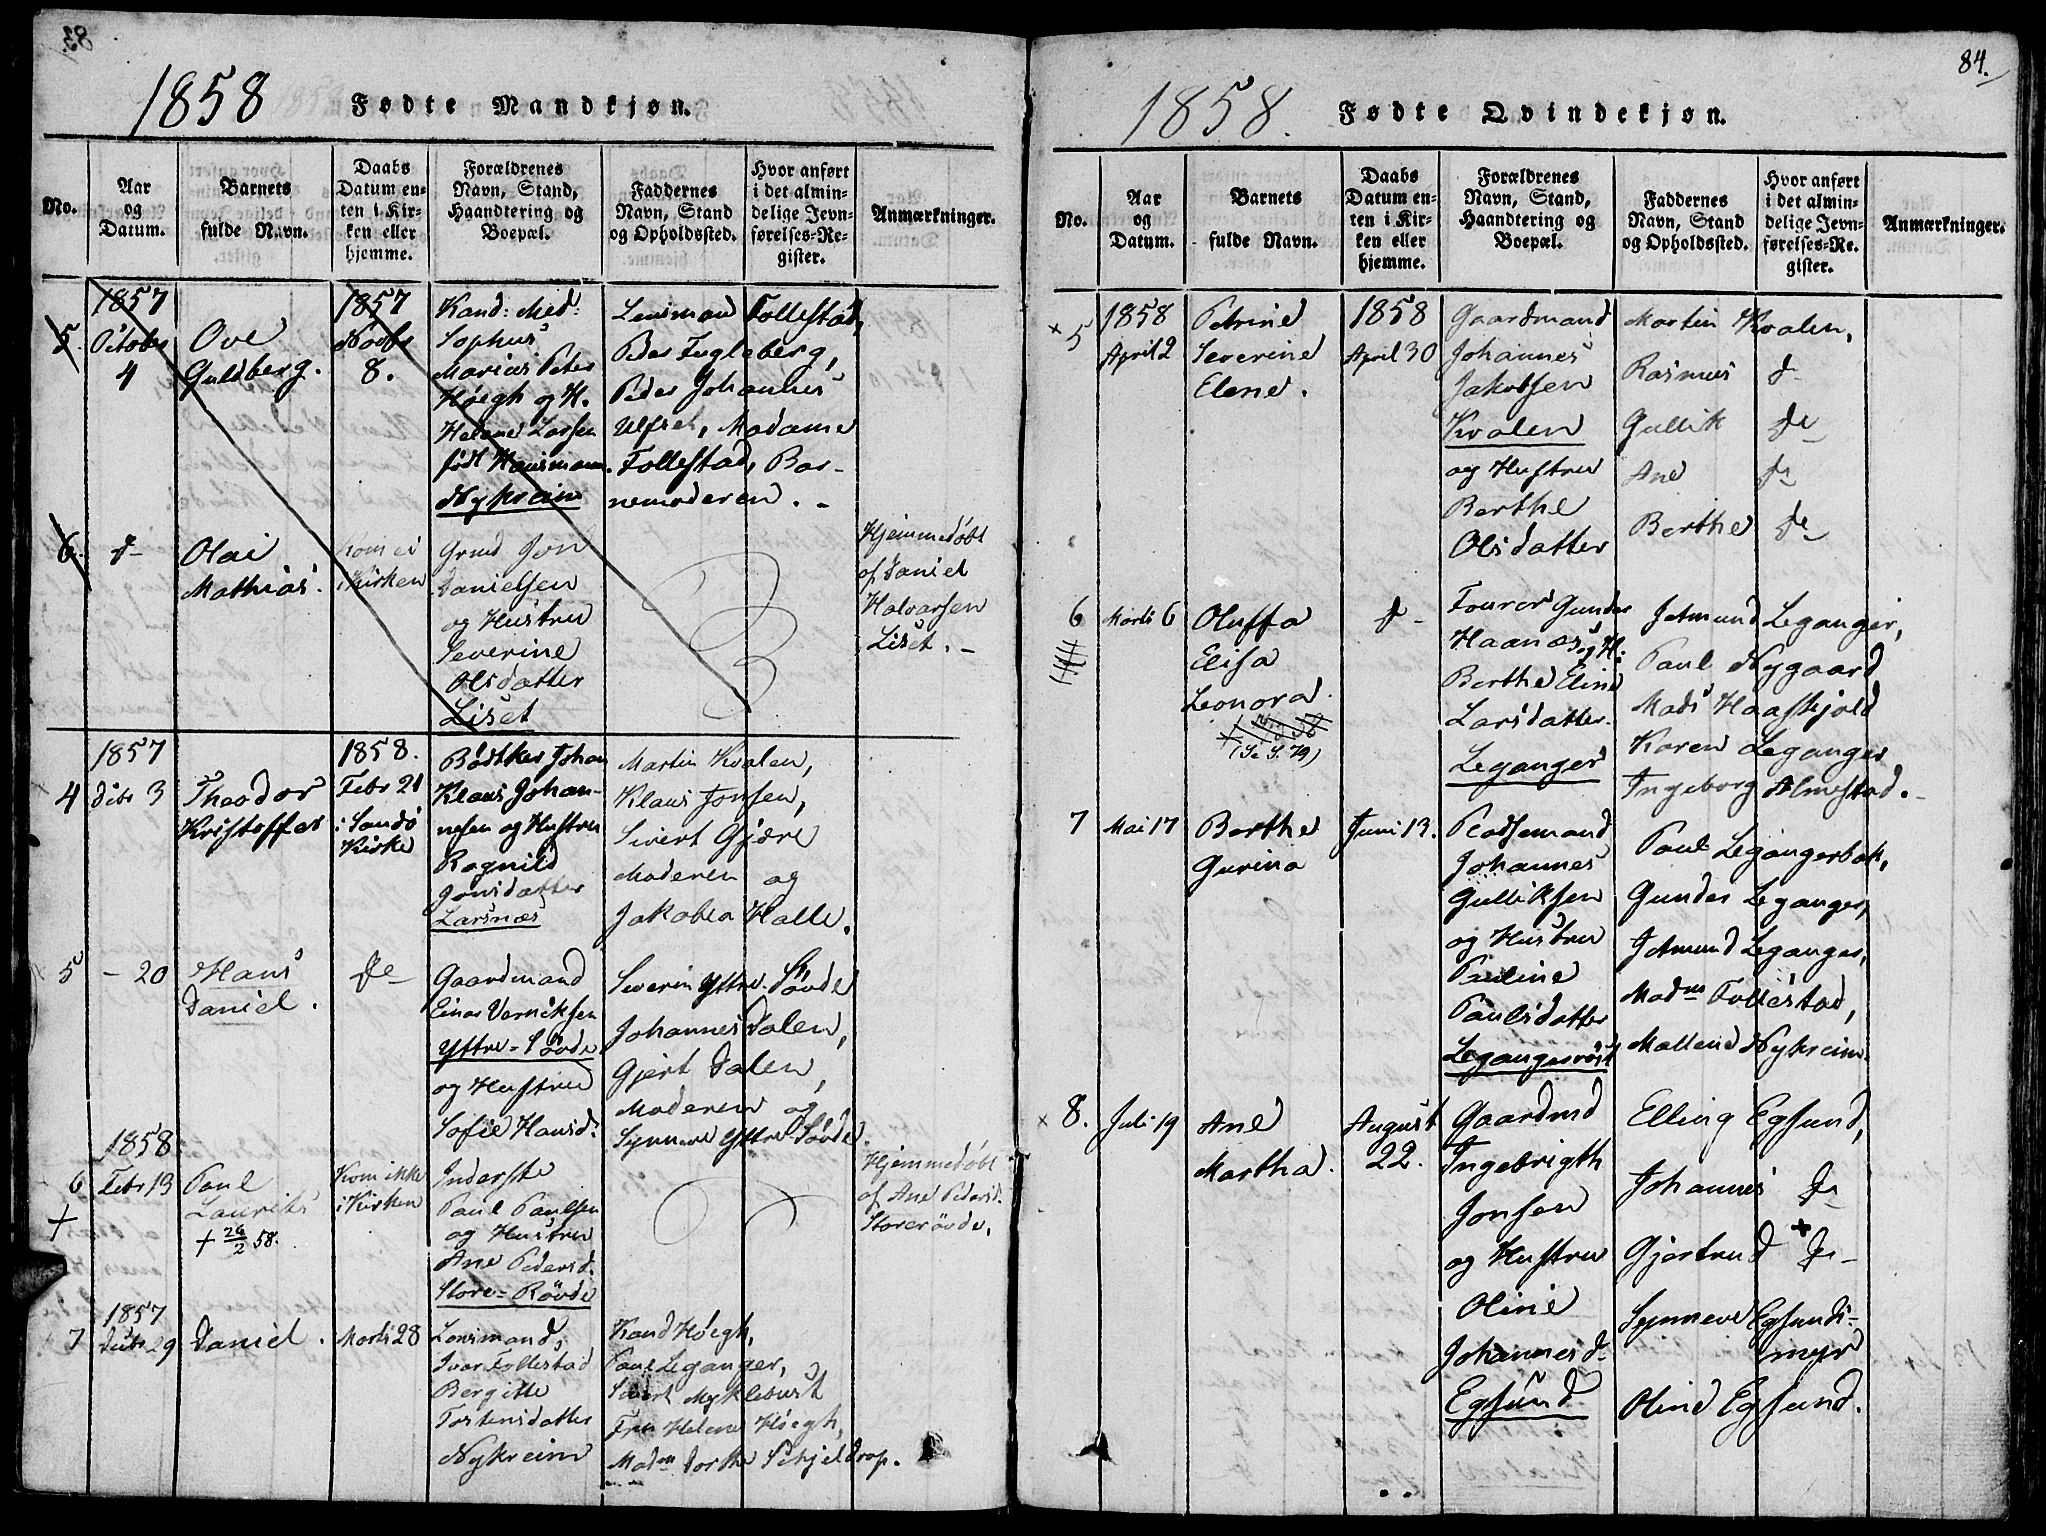 83.
1858 Fødte Mandkjøn.
No.
Aar
og
Datum.
Barnets
fulde Navn.
Daabs
Datum en-
ten i Kir-
ken eller
hjemme.
Forældrenes
Navn, Stand,
Haandtering og
Boepæl.
Faddernes
Navn, Stand
og Opholdssted.
Hvor anført
i det almin-
delige Jevn-
førelses-Re-
gister.
Anmærkninger.
5.
1857
October
4
Ove
Guldberg.
1857
Novbr
8.
Kand: Med:
Sophus
Marius Peter
Høegh og H.
Helene Larsen
født Hausmann.
Nykreim
Lensmand Follestad,
Peder Fugleberg,
Peder Johannes
Ulfset, Madame
Follestad, Bar-
nemoderen. -
6.
d-
Olai
Mathias.
Kom ei
i Kirken
Grmd Jon
Danielsen
og Hustru
Severine
Olsdatter
Liset
Hjemmedøbt
af Daniel
Halvorsen
Liset. -
4
1857
Decbr 3
Theodor
Kristoffer
1858.
Febr 21
i Sandø
Kirke
Bødtker Johan
Klaus Johan-
nesen og Hustru
Ragnild
Jonsdatter
Larsnæs
Martin Kvalen,
Klaus Jonsen,
Sivert Gjære
Moderen og
Jakobea Halle.
5
- 20
Hans
Daniel.
do
Gaardmand
Einar Verniksen
Yttre-Søvde
og Hustru
Sofie Hansd:
Severin Yttre-Søvde
Johannes Dalen,
Gjert Dalen,
Moderen og
Synneve Yttre Søvde.
6
+
1858
Febr 13
Paul
Laurits
+ 26/2 58.
Kom ikke
i Kirken
Inderste
Paul Paulsen
og Hustru
Ane Pedersd.
Store-Røvde
Hjemmedøbt
af Ane Pedersd.
Storerövde.
7
1857
Decbr 29
Daniel.
Marts 28
Lensmand,
Ivar Follestad
Bergitte
Tostensdatter
Nykreim
Kand Høegh,
Paul Leganger,
Sivert Myklebust
Fru Helene Høegh,
Madm Dorthe Schjeldrop.
84.
1858. Fødte Qvindekjøn.
No.
Aar
og
Datum.
Barnets
fulde Navn.
Daabs
Datum en-
ten i Kir-
ken eller
hjemme.
Forældrenes
Navn, Stand,
Haandtering og
Boepæl.
Faddernes
Navn, Stand
og Opholdssted.
Hvor anført
i det almin-
delige Jevn-
førelses-Re-
gister.
Anmærkninger.
× 5
1858
April 2
Petrine
Severine
Elene.
1858
April 30
Gaardmand
Johannes
Jakobsen
Kvalen
og Hustru
Berthe
Olsdatter
Martin Kvalen,
Rasmus d-
Gullik do
Ane do
Berthe do
6
Marts 6
Oluffa
Elisa
Leonora.
(Se S. 79)
d-
Fourer Gunder
Haanæs og H:
Berthe Eline
Larsdatter.
Leganger
Jetmund Leganger,
Paul Nygaard
Mads Haaskjold
Karen Leganger
Ingeborg Almestad. -
7
Mai 17
Berthe
Gurina
Juni 13.
Pladsemand
Johannes
Gulliksen
og Hustru
Pauline
Paulsdatter
Legangerröst
Paul Legangerbak,
Gunder Leganger,
Jetmund Leganger,
Madm Follestad,
Mallene Nykreim.
× 8.
Juli 19
Ane
Martha.
August
22.
Gaardmd
Ingebrigth
Jonsen
og Hustru
Oline
Johannesd-
Egsund
Elling Egsund,
Johannes do
Gjertrud do-
Synneve Egsunds-
myr
Oline Egsund.